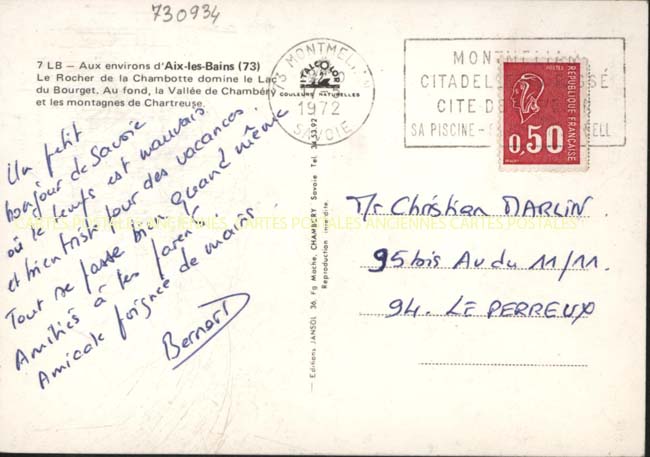 730934
7 LB — Aux environs d'Aix-les-Bains (73)
Le Rocher de la Chambotte domine le Lac
du Bourget. Au fond, la Vallée de Chambéry
et les montagnes de Chartreuse.
Un petit
bonjour de Savoie
où le temps est mauvais
et bien triste pour des vacances.
Tout se passe bien quand même
Amitiés à tes parents
Amicale poignée de mains.
Bernard
73 MONTMELIAN
1972
SAVOIE
ITALCOLOR
COULEURS NATURELLES
MONTMELIAN
CITADELLE
CITE DE
SA PISCINE
POSTES
REPUBLIQUE FRANÇAISE
0,50
Editions JANSOL 36, Fg Mache, CHAMBERY Savoie Tel. 34.53.92
Reproduction interdite.
CARTES POSTALES ANCIENNES CARTES POSTALES ANCIENNES CARTES POSTALES
Mr Christian MARLIN
95bis Av du 11/11.
94. LE PERREUX